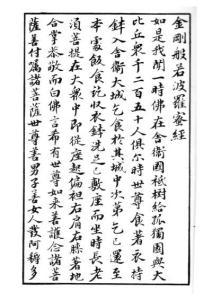 金剛般若波羅蜜經
如是我聞一時佛在舍衛國祇樹給孤獨園與大
比丘衆千二百五十人俱尔時世尊食時著衣持
鉢入舍衛大城乞食於其城中次第乞已還至
本處飯食訖收衣鉢洗足已敷座而坐時長老
須菩提在大衆中即從座起偏袒右肩右膝著地
合掌恭敬而白佛言希有世尊如來善護念諸菩
薩善付囑諸菩薩世尊善男子善女人發阿耨多